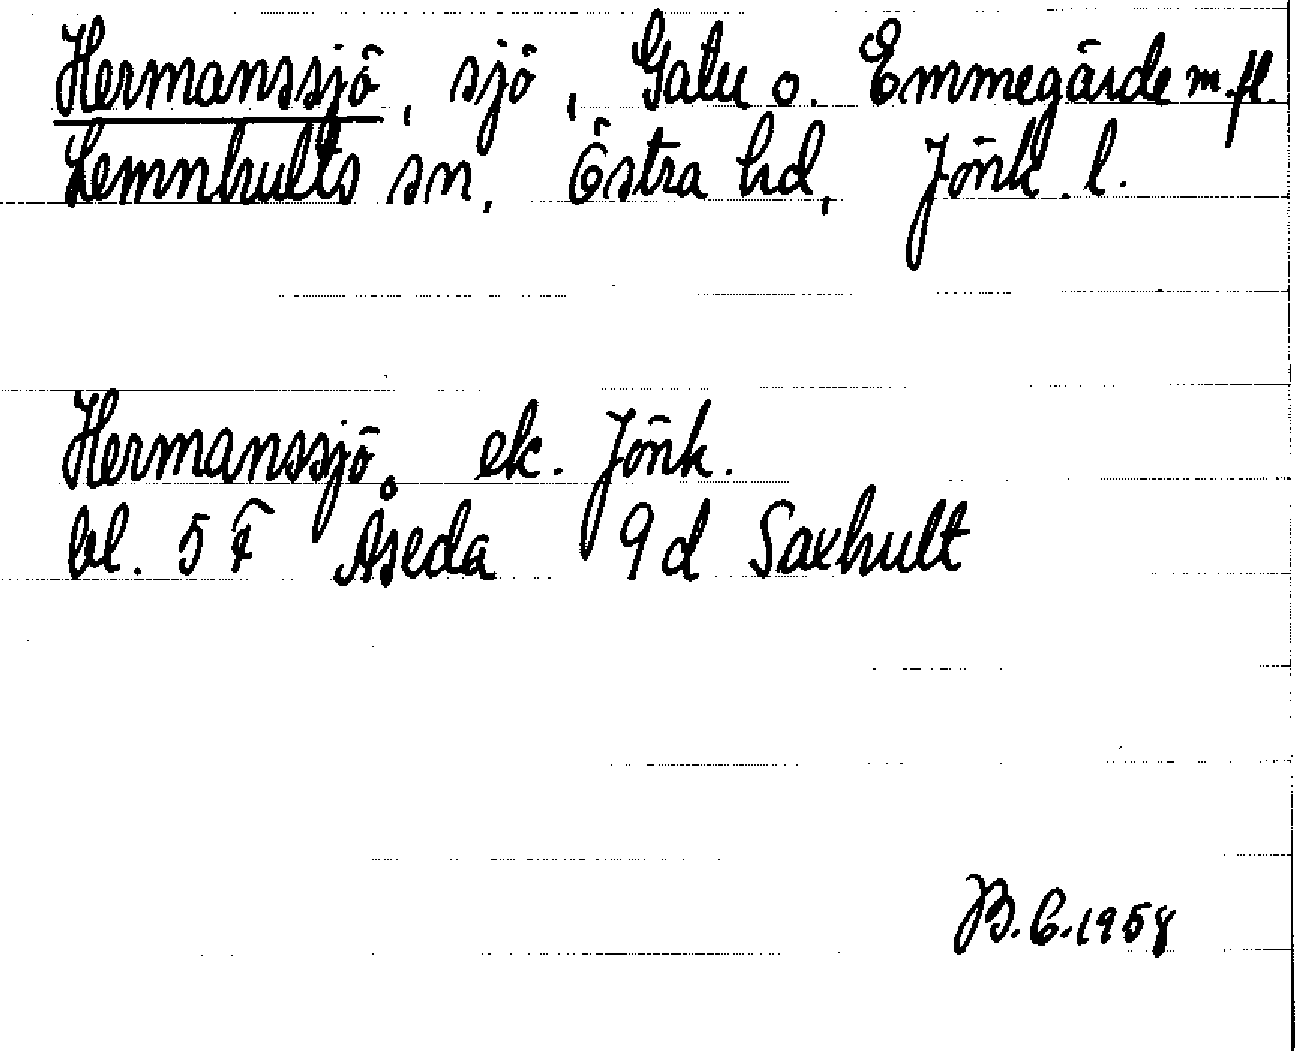 Hermanssjö, sjö, Galu o. Emmegärde m.fl.
Lemnhults sn, Östra hd, Jönk. l.
Hermanssjö, ek. Jönk.
bl. 5 F Åseda 9 d Saxhult
B.C. 1958